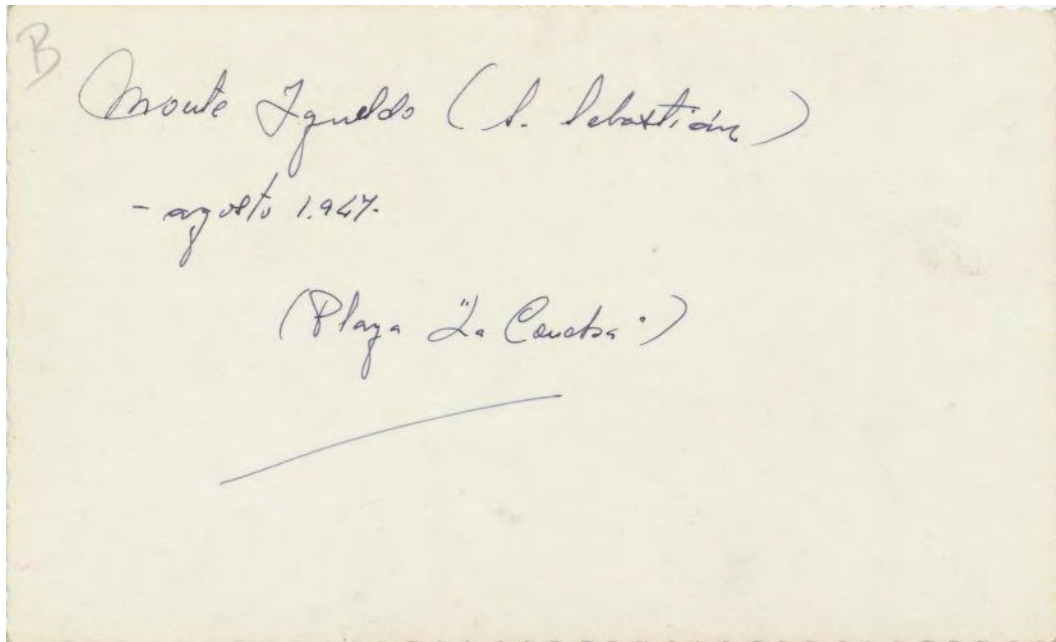 B
Monte Igueldo (S. Sebastián)
- agosto 1.947.
(Playa "La Concha")